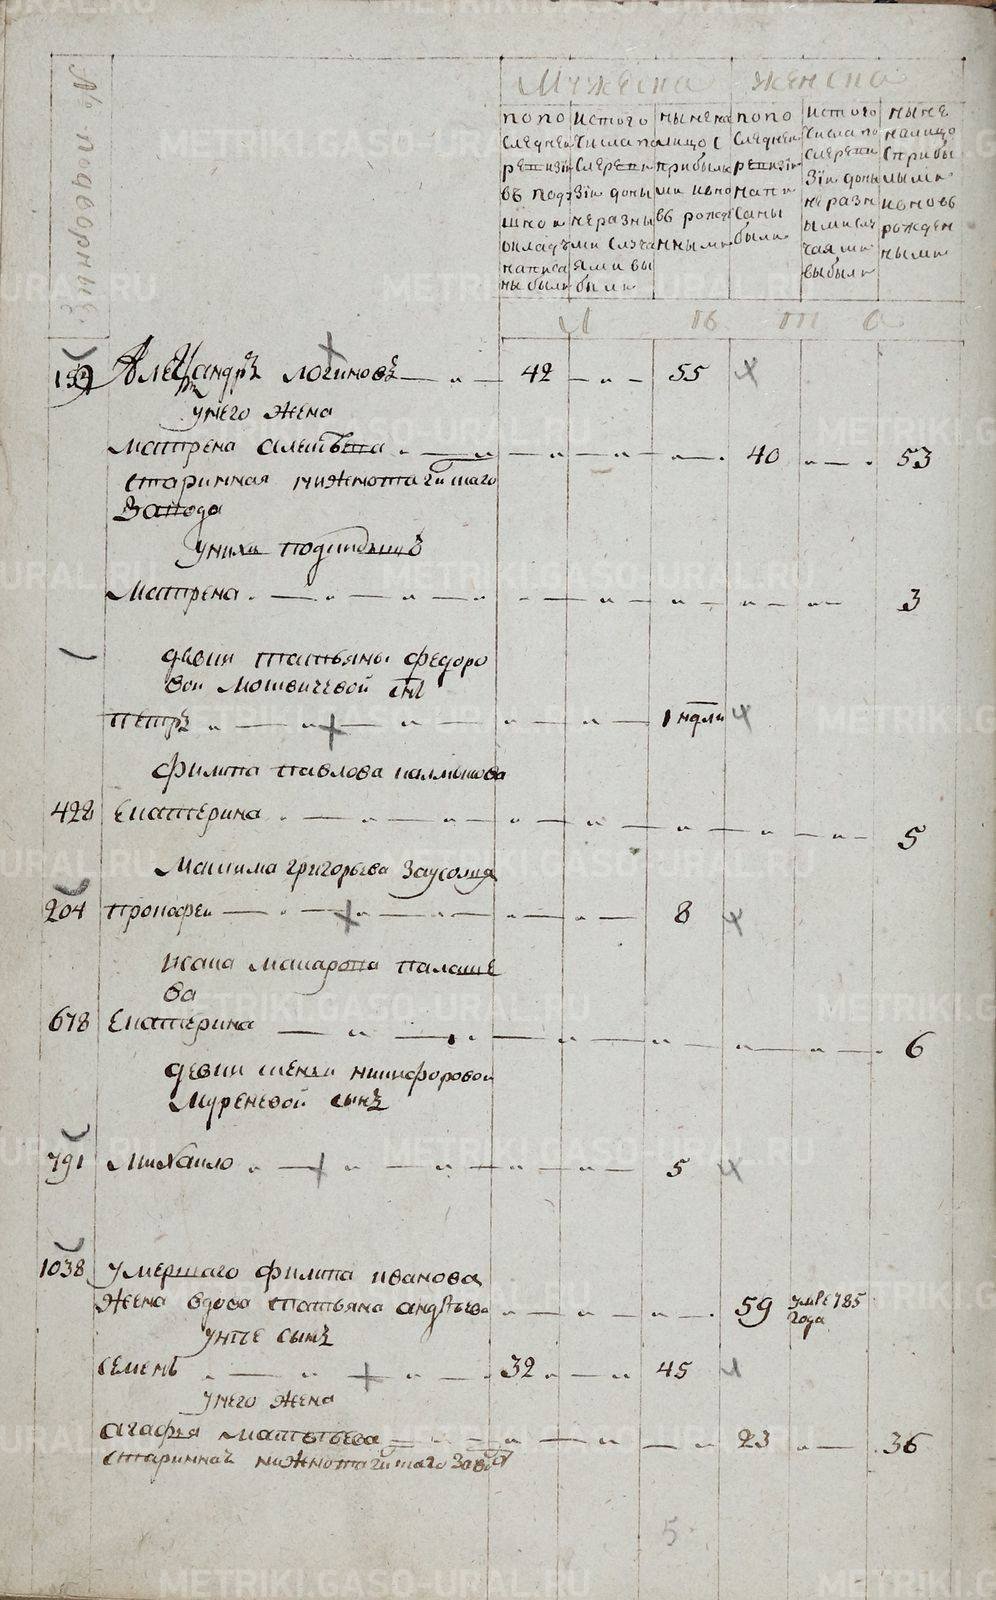 № подворныѣ
Мужеска женска
попо
следнеи
ревизiи
въ подъ
шнои
окладъ
написа
ны были
истого
числа по
слереви
зiи доны
не разны
ми случа
ями вы
были
ныне на
лицо с
прибылы
ми ивно
въ рожде
нными
попо
следнеи
ревизiи
напи
саны
были
истого
числа по
слереви
зiи доны
не разн
ыми слу
чаями
выбыли
ныне
налицо
с прибы
лыми
ивновь
рожден
ными
л в т а
Александръ логиновъ 42 55
унего жена
матрена алеѯѣева 40 53
старинная нижнотагилскаго
Завода
униха подкидышъ
Матрена 3
девки татьяны федоро
вои мошвичевой снъ
петръ 1 ндли
филипа павлова калмыкова
428 Екатерина 5
Маѯима григорьева Заусолца
204 прокофеи 8
исака макарова палаше
ва
678 Екатерина 6
девки никифоровои
Муреневой сынъ
791 михаило 5
1038 умершаго филипа иванова
жена вдова татьяна андреева 59 умре 785
года
унее сынъ
семенъ 32 45
унего жена
агафья матвѣева 23 36
стариннаѣ нижнотагилскаго завод
5
METRIKI.GASO-URAL.RU